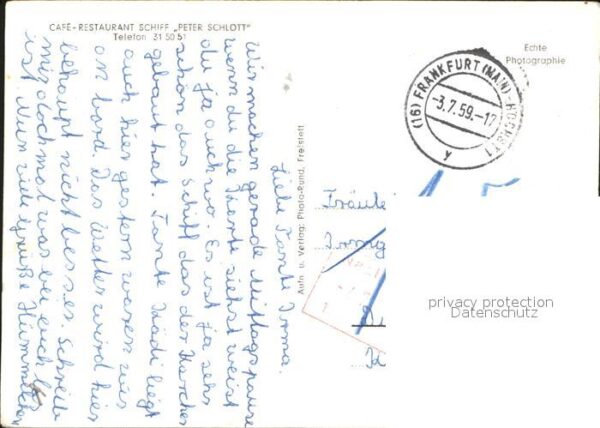 CAFÉ-RESTAURANT SCHIFF „PETER SCHLOTT"
Telefon 31 50 51
Echte
Photographie
(16) FRANKFURT (MAIN)-HÖCHST 1
-3.7.59.-17
y
Aufn u. Verlag: Photo-Rund, Freistett
Liebe Tante Irma.
Wir machen gerade Mittagspause
wenn du die Karte siehst weist
du ja auch wo. Es ist ja sehr
schön das Schiff das der Karcher
gebaut hat. Tante Trädi liegt
auch hier gestern waren wir
an bord. Das Wetter wird hier
behaupt nicht besser. Schreib
mir doch mal was bei euch los
ist. Nun viele Grüße
Fräule
Irmg
privacy protection
Datenschutz